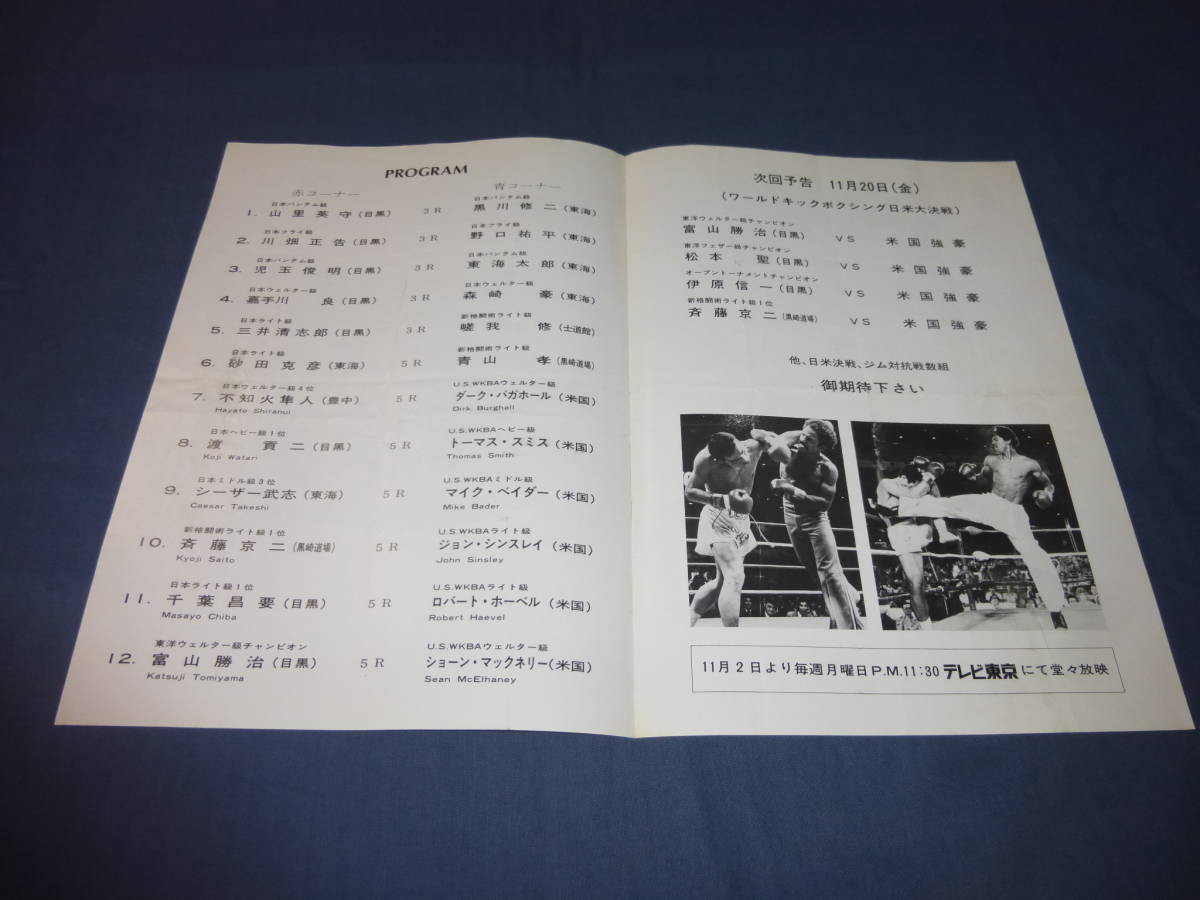 PROGRAM
赤コーナー 青コーナー
日本バンタム級 日本バンタム級
1. 山里英守(目黒) 3R 黒川修二(東海)
日本フライ級 日本フライ級
2. 川畑正告(目黒) 3R 野口祐平(東海)
日本バンタム級 日本バンタム級
3. 児玉俊明(目黒) 3R 東海太郎(東海)
日本ウェルター級 日本ウェルター級
4. 嘉手川 良(目黒) 3R 森崎 豪(東海)
日本ライト級 新格闘術ライト級
5. 三井清志郎(目黒) 3R 嵯我 修(士道館)
日本ライト級 新格闘術ライト級
6. 砂田克彦(東海) 5R 青山 孝(黒崎道場)
日本ウェルター級4位 U.S.WKBAウェルター級
7. 不知火隼人(豊中) 5R ダーク・バガホール(米国)
Hayato Shiranui Dirk Burghall
日本ヘビー級1位 U.S.WKBAヘビー級
8. 渡 貢二(目黒) 5R トーマス・スミス(米国)
Koji Watari Thomas Smith
日本ミドル級3位 U.S.WKBAミドル級
9. シーザー武志(東海) 5R マイク・ベイダー(米国)
Caesar Takeshi Mike Bader
新格闘術ライト級1位 U.S.WKBAライト級
10. 斉藤京二(黒崎道場) 5R ジョン・シンスレイ(米国)
Kyoji Saito John Sinsley
日本ライト級1位 U.S.WKBAライト級
11. 千葉昌要(目黒) 5R ロバート・ホーベル(米国)
Masayo Chiba Robert Haevel
東洋ウェルター級チャンピオン U.S.WKBAウェルター級
12. 富山勝治(目黒) 5R ショーン・マックネリー(米国)
Katsuji Tomiyama Sean McElhaney
次回予告 11月20日(金)
(ワールドキックボクシング日米大決戦)
東洋ウェルター級チャンピオン
富山勝治(目黒) VS 米国強豪
東洋フェザー級チャンピオン
松本 聖(目黒) VS 米国強豪
オープントーナメントチャンピオン
伊原信一(目黒) VS 米国強豪
新格闘術ライト級1位
斉藤京二(黒崎道場) VS 米国強豪
他、日米決戦、ジム対抗戦数組
御期待下さい
11月2日より毎週月曜日P.M.11:30 テレビ東京にて堂々放映